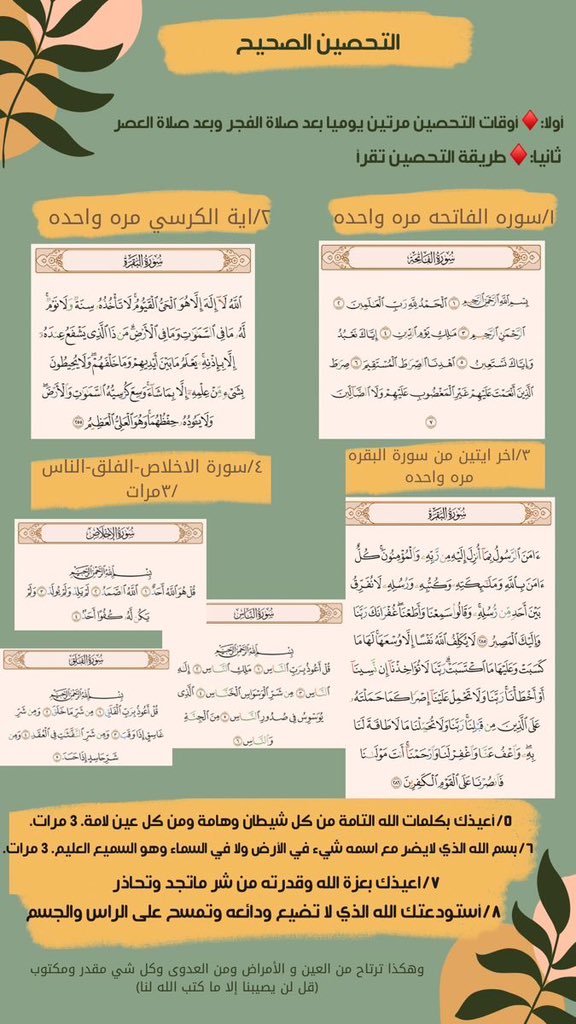 التحصين الصحيح
أولا:♦️أوقات التحصين مرتين يوميا بعد صلاة الفجر وبعد صلاة العصر
ثانيا:♦️طريقة التحصين تقرأ
١/سوره الفاتحه مره واحده
سُورَةُ الفَاتِحَةِ
بِسْمِ اللَّهِ الرَّحْمَٰنِ الرَّحِيمِ ١ الْحَمْدُ لِلَّهِ رَبِّ الْعَٰلَمِينَ ٢
الرَّحْمَٰنِ الرَّحِيمِ ٣ مَٰلِكِ يَوْمِ الدِّينِ ٤ إِيَّاكَ نَعْبُدُ
وَإِيَّاكَ نَسْتَعِينُ ٥ اهْدِنَا الصِّرَٰطَ الْمُسْتَقِيمَ ٦ صِرَٰطَ
الَّذِينَ أَنْعَمْتَ عَلَيْهِمْ غَيْرِ الْمَغْضُوبِ عَلَيْهِمْ وَلَا الضَّالِّينَ
٧
٢/اية الكرسي مره واحده
سُورَةُ البَقَرَةِ
اللَّهُ لَا إِلَٰهَ إِلَّا هُوَ الْحَيُّ الْقَيُّومُ لَا تَأْخُذُهُ سِنَةٌ وَلَا نَوْمٌ
لَّهُ مَا فِي السَّمَٰوَٰتِ وَمَا فِي الْأَرْضِ مَن ذَا الَّذِي يَشْفَعُ عِندَهُ
إِلَّا بِإِذْنِهِ يَعْلَمُ مَا بَيْنَ أَيْدِيهِمْ وَمَا خَلْفَهُمْ وَلَا يُحِيطُونَ
بِشَيْءٍ مِّنْ عِلْمِهِ إِلَّا بِمَا شَاءَ وَسِعَ كُرْسِيُّهُ السَّمَٰوَٰتِ وَالْأَرْضَ
وَلَا يَـُٔودُهُ حِفْظُهُمَا وَهُوَ الْعَلِيُّ الْعَظِيمُ ٢٥٥
٣/اخر ايتين من سورة البقره
مره واحده
سُورَةُ البَقَرَةِ
ءَامَنَ الرَّسُولُ بِمَا أُنزِلَ إِلَيْهِ مِن رَّبِّهِ وَالْمُؤْمِنُونَ كُلٌّ
ءَامَنَ بِاللَّهِ وَمَلَٰئِكَتِهِ وَكُتُبِهِ وَرُسُلِهِ لَا نُفَرِّقُ
بَيْنَ أَحَدٍ مِّن رُّسُلِهِ وَقَالُوا سَمِعْنَا وَأَطَعْنَا غُفْرَانَكَ رَبَّنَا
وَإِلَيْكَ الْمَصِيرُ ٢٨٥ لَا يُكَلِّفُ اللَّهُ نَفْسًا إِلَّا وُسْعَهَا لَهَا مَا
كَسَبَتْ وَعَلَيْهَا مَا اكْتَسَبَتْ رَبَّنَا لَا تُؤَاخِذْنَا إِن نَّسِينَا
أَوْ أَخْطَأْنَا رَبَّنَا وَلَا تَحْمِلْ عَلَيْنَا إِصْرًا كَمَا حَمَلْتَهُ
عَلَى الَّذِينَ مِن قَبْلِنَا رَبَّنَا وَلَا تُحَمِّلْنَا مَا لَا طَاقَةَ لَنَا
بِهِ وَاعْفُ عَنَّا وَاغْفِرْ لَنَا وَارْحَمْنَا أَنتَ مَوْلَىٰنَا
فَانصُرْنَا عَلَى الْقَوْمِ الْكَٰفِرِينَ ٢٨٦
٤/سورة الاخلاص-الفلق-الناس
/٣مرات
سُورَةُ الإِخْلَاصِ
بِسْمِ اللَّهِ الرَّحْمَٰنِ الرَّحِيمِ
قُلْ هُوَ اللَّهُ أَحَدٌ ١ اللَّهُ الصَّمَدُ ٢ لَمْ يَلِدْ وَلَمْ يُولَدْ ٣ وَلَمْ
يَكُن لَّهُ كُفُوًا أَحَدٌ ٤
سُورَةُ النَّاسِ
بِسْمِ اللَّهِ الرَّحْمَٰنِ الرَّحِيمِ
قُلْ أَعُوذُ بِرَبِّ النَّاسِ ١ مَلِكِ النَّاسِ ٢ إِلَٰهِ
النَّاسِ ٣ مِن شَرِّ الْوَسْوَاسِ الْخَنَّاسِ ٤ الَّذِي
يُوَسْوِسُ فِي صُدُورِ النَّاسِ ٥ مِنَ الْجِنَّةِ
وَالنَّاسِ ٦
سُورَةُ الفَلَقِ
بِسْمِ اللَّهِ الرَّحْمَٰنِ الرَّحِيمِ
قُلْ أَعُوذُ بِرَبِّ الْفَلَقِ ١ مِن شَرِّ مَا خَلَقَ ٢ وَمِن شَرِّ
غَاسِقٍ إِذَا وَقَبَ ٣ وَمِن شَرِّ النَّفَّٰثَٰتِ فِي الْعُقَدِ ٤ وَمِن
شَرِّ حَاسِدٍ إِذَا حَسَدَ ٥
٥/أعيذك بكلمات الله التامة من كل شيطان وهامة ومن كل عين لامة. 3 مرات.
٦/بسم الله الذي لايضر مع اسمه شيء في الأرض ولا في السماء وهو السميع العليم. 3 مرات.
٧/اعيذك بعزة الله وقدرته من شر ماتجد وتحاذر
٨/أستودعتك الله الذي لا تضيع ودائعه وتمسح على الراس والجسم
وهكذا ترتاح من العين و الأمراض ومن العدوى وكل شي مقدر ومكتوب
(قل لن يصيبنا إلا ما كتب الله لنا)